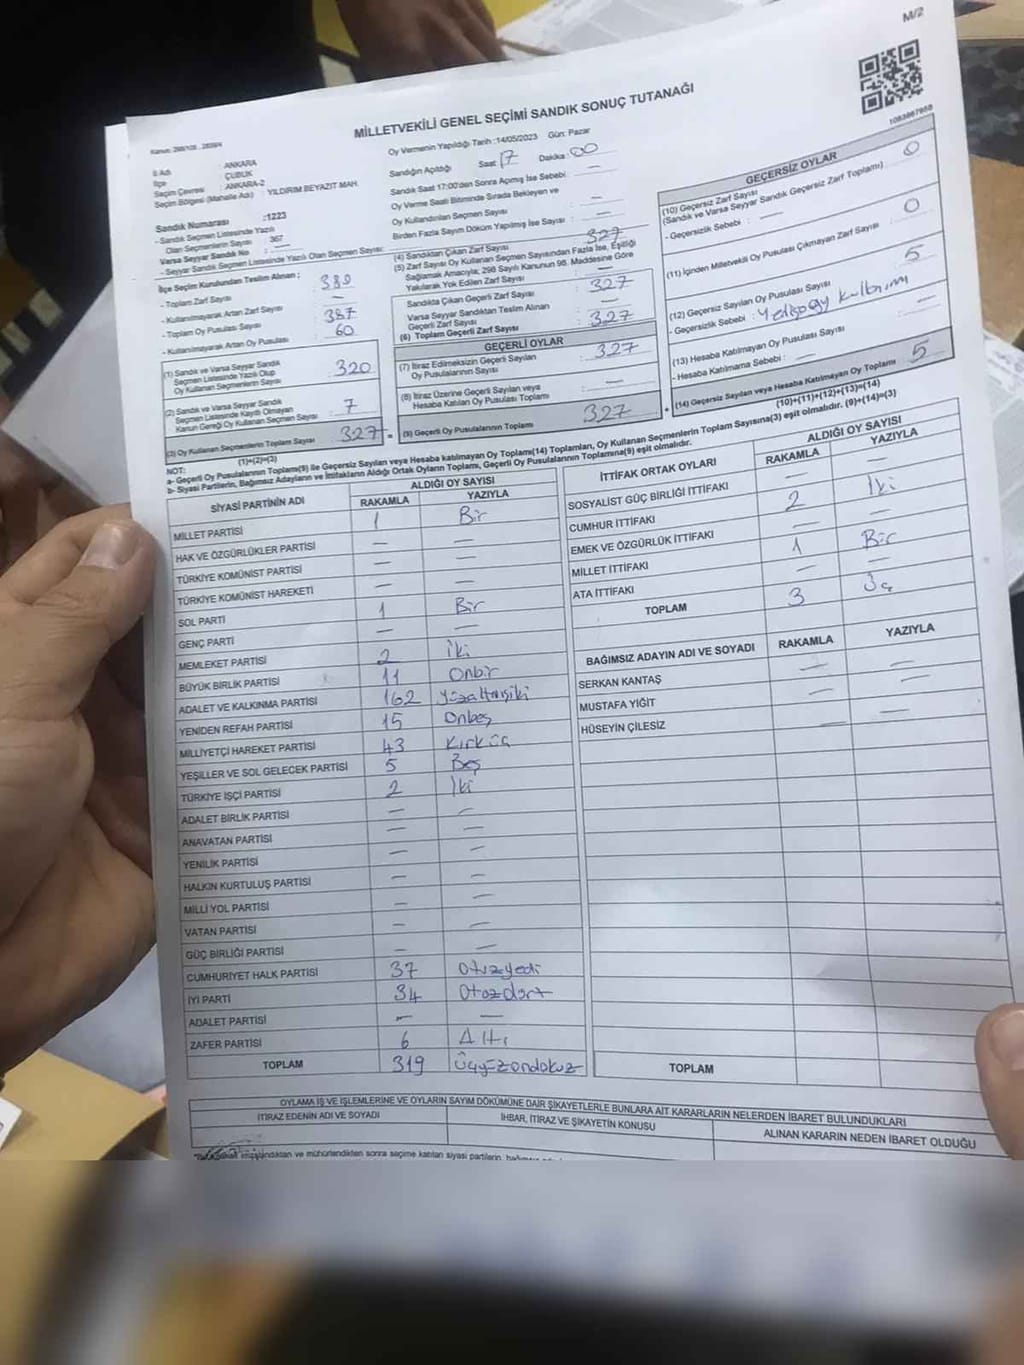 M/2
1083867958
MİLLETVEKİLİ GENEL SEÇİMİ SANDIK SONUÇ TUTANAĞI
İl Adı : ANKARA
İlçe : ÇUBUK
Seçim Çevresi : ANKARA-2
Seçim Bölgesi (Mahalle Adı) : YILDIRIM BEYAZIT MAH.
Sandık Numarası :1223
- Sandık Seçmen Listesinde Yazılı
Olan Seçmenlerin Sayısı : 367
Varsa Seyyar Sandık No : —
- Seyyar Sandık Seçmen Listesinde Yazılı Olan Seçmen Sayısı:
İlçe Seçim Kurulundan Teslim Alınan ;
- Toplam Zarf Sayısı : 380
- Kullanılmayarak Artan Zarf Sayısı : —
- Toplam Oy Pusulası Sayısı : 387
- Kullanılmayarak Artan Oy Pusulası : 60
(1) Sandık ve Varsa Seyyar Sandık
Seçmen Listesinde Yazılı Olup
Oy Kullanan Seçmenlerin Sayısı : 320
(2) Sandık ve Varsa Seyyar Sandık
Seçmen Listesinde Kayıtlı Olmayan
Kanun Gereği Oy Kullanan Seçmen Sayısı : 7
(3) Oy Kullanan Seçmenlerin Toplam Sayısı 327
(1)+(2)=(3)
Oy Vermenin Yapıldığı Tarih :14/05/2023 Gün: Pazar
Sandığın Açıldığı Saat : 17 Dakika : 00
Sandık Saat 17:00'den Sonra Açımış İse Sebebi : —
Oy Verme Saati Bitiminde Sırada Bekleyen ve
Oy Kullandırılan Seçmen Sayısı : —
Birden Fazla Sayım Döküm Yapılmış İse Sayısı : —
(4) Sandıktan Çıkan Zarf Sayısı : 327
(5) Zarf Sayısı Oy Kullanan Seçmen Sayısından Fazla İse, Eşitliği
Sağlamak Amacıyla; 298 Sayılı Kanunun 98. Maddesine Göre
Yakılarak Yok Edilen Zarf Sayısı : —
Sandıkta Çıkan Geçerli Zarf Sayısı : 327
Varsa Seyyar Sandıktan Teslim Alınan
Geçerli Zarf Sayısı : —
(6) Toplam Geçerli Zarf Sayısı : 327
GEÇERLİ OYLAR
(7) İtiraz Edilmeksizin Geçerli Sayılan
Oy Pusulalarının Sayısı : 327
(8) İtiraz Üzerine Geçerli Sayılan veya
Hesaba Katılan Oy Pusulası Toplamı : —
(9) Geçerli Oy Pusulalarının Toplamı 327
GEÇERSİZ OYLAR
(10) Geçersiz Zarf Sayısı
(Sandık ve Varsa Seyyar Sandık Geçersiz Zarf Toplamı) 0
- Geçersizlik Sebebi : —
(11) İçinden Milletvekili Oy Pusulası Çıkmayan Zarf Sayısı : 0
(12) Geçersiz Sayılan Oy Pusulası Sayısı : 5
- Geçersizlik Sebebi :
(13) Hesaba Katılmayan Oy Pusulası Sayısı : —
- Hesaba Katılmama Sebebi : —
(14) Geçersiz Sayılan veya Hesaba Katılmayan Oy Toplamı 5
(10)+(11)+(12)+(13)=(14)
NOT:
a- Geçerli Oy Pusulalarının Toplamı(9) ile Geçersiz Sayılan veya Hesaba katılmayan Oy Toplamı(14) Toplamları, Oy Kullanan Seçmenlerin Toplam Sayısına(3) eşit olmalıdır. (9)+(14)=(3)
b- Siyasi Partilerin, Bağımsız Adayların ve İttifakların Aldığı Ortak Oyların Toplamı, Geçerli Oy Pusulalarının Toplamına(9) eşit olmalıdır.
SİYASİ PARTİNİN ADI ALDIĞI OY SAYISI
RAKAMLA YAZIYLA
MİLLET PARTİSİ 1 Bir
HAK VE ÖZGÜRLÜKLER PARTİSİ — —
TÜRKİYE KOMÜNİST PARTİSİ — —
TÜRKİYE KOMÜNİST HAREKETİ — —
SOL PARTİ 1 Bir
GENÇ PARTİ — —
MEMLEKET PARTİSİ 2 İki
BÜYÜK BİRLİK PARTİSİ 11 Onbir
ADALET VE KALKINMA PARTİSİ 162 Yüzaltmışiki
YENİDEN REFAH PARTİSİ 15 Onbeş
MİLLİYETÇİ HAREKET PARTİSİ 43 Kırküç
YEŞİLLER VE SOL GELECEK PARTİSİ 5 Beş
TÜRKİYE İŞÇİ PARTİSİ 2 İki
ADALET BİRLİK PARTİSİ — —
ANAVATAN PARTİSİ — —
YENİLİK PARTİSİ — —
HALKIN KURTULUŞ PARTİSİ — —
MİLLİ YOL PARTİSİ — —
VATAN PARTİSİ — —
GÜÇ BİRLİĞİ PARTİSİ — —
CUMHURİYET HALK PARTİSİ 37 Otuzyedi
İYİ PARTİ 34 Otuzdört
ADALET PARTİSİ — —
ZAFER PARTİSİ 6 Altı
TOPLAM 319 Üçyüzondokuz
İTTİFAK ORTAK OYLARI ALDIĞI OY SAYISI
RAKAMLA YAZIYLA
SOSYALİST GÜÇ BİRLİĞİ İTTİFAKI — —
CUMHUR İTTİFAKI 2 İki
EMEK VE ÖZGÜRLÜK İTTİFAKI — —
MİLLET İTTİFAKI 1 Bir
ATA İTTİFAKI — —
TOPLAM 3 Üç
BAĞIMSIZ ADAYIN ADI VE SOYADI RAKAMLA YAZIYLA
SERKAN KANTAŞ — —
MUSTAFA YİĞİT — —
HÜSEYİN ÇİLESİZ — —
TOPLAM
OYLAMA İŞ VE İŞLEMLERİNE VE OYLARIN SAYIM DÖKÜMÜNE DAİR ŞİKAYETLERLE BUNLARA AİT KARARLARIN NELERDEN İBARET BULUNDUKLARI
İTİRAZ EDENİN ADI VE SOYADI İHBAR, İTİRAZ VE ŞİKAYETİN KONUSU ALINAN KARARIN NEDEN İBARET OLDUĞU
imzalandıktan ve mühürlendikten sonra seçime katılan siyasi partilerin,